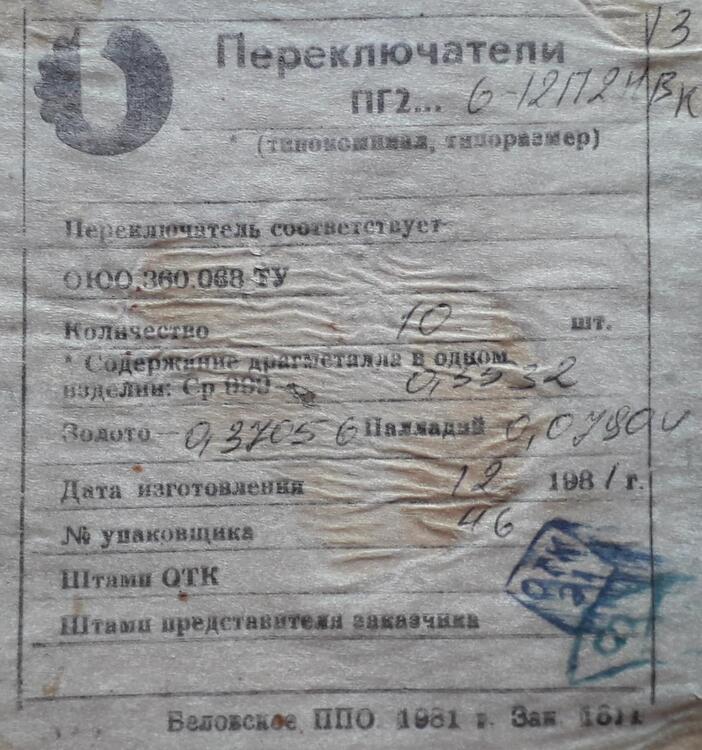 Переключатели
ПГ2... 6-12П2Н ВК
* (типономинал, типоразмер)
Переключатель соответствует
ОЮО.360.068 ТУ
Количество 10 шт.
* Содержание драгметалла в одном
изделии: Ср 999 0,3532
Золото 0,37056 Палладий 0,0780
Дата изготовления 12 1981 г.
№ упаковщика 46
Штамп ОТК
Штамп представителя заказчика
Беловское ППО 1981 г. Зак.